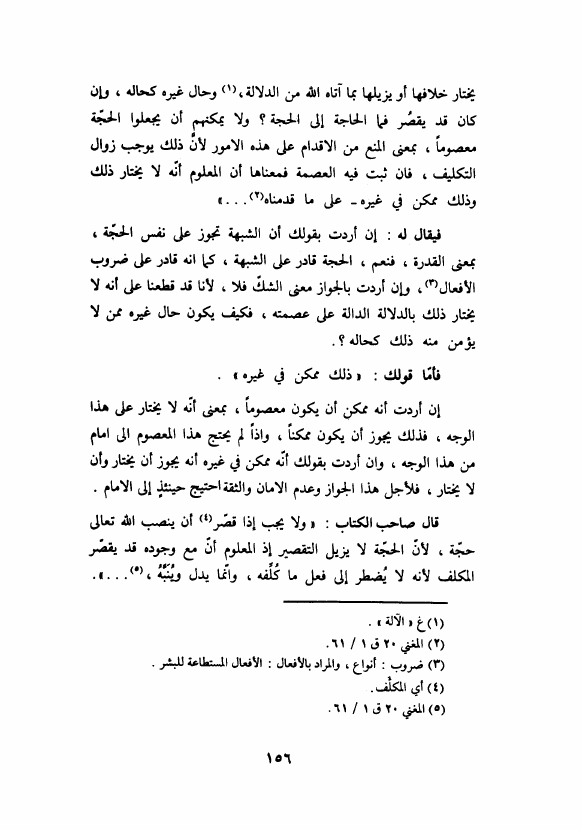 يختار خلافها أو يزيلها بما آتاه الله من الدلالة،(١) وحال غيره كحاله ، وإن
كان قد يقصُر فما الحاجة إلى الحجة ؟ ولا يمكنهم أن يجعلوا الحجّة
معصوماً ، بمعنى المنع من الاقدام على هذه الامور لأنَّ ذلك يوجب زوال
التكليف ، فان ثبت فيه العصمة فمعناها أن المعلوم أنّه لا يختار ذلك
وذلك ممكن في غيره - على ما قدمناه(٢). . . »
فيقال له : إن أردت بقولك أن الشبهة تجوز على نفس الحجّة ،
بمعنى القدرة ، فنعم ، الحجة قادر على الشبهة ، كما انه قادر على ضروب
الأفعال(٣)، وإن أردت بالجواز معنى الشكّ فلا ، لأنا قد قطعنا على أنه لا
يختار ذلك بالدلالة الدالة على عصمته ، فكيف يكون حال غيره ممن لا
يؤمن منه ذلك كحاله ؟ .
فأمّا قولك : « ذلك ممكن في غيره » .
إن أردت أنه ممكن أن يكون معصوماً ، بمعنى أنّه لا يختار على هذا
الوجه ، فذلك يجوز أن يكون ممكناً ، واذاً لم يحتج هذا المعصوم الى امام
من هذا الوجه ، وان أردت بقولك أنّه ممكن في غيره أنه يجوز أن يختار وأن
لا يختار ، فلأجل هذا الجواز وعدم الامان والثقة احتيج حينئذٍ إلى الامام .
قال صاحب الكتاب : « ولا يجب إذا قصّر(٤) أن ينصب الله تعالى
حجّة ، لأنّ الحجّة لا يزيل التقصير إذ المعلوم أنّ مع وجوده قد يقصّر
المكلف لأنه لا يُضطر إلى فعل ما كُلِّفه ، وانّما يدل ويُنَبِّهُ ،(٥). . . ».
(١) غ « الآلة » .
(٢) المغني ٢٠ ق ١ / ٦١.
(٣) ضروب : أنواع ، والمراد بالأفعال : الأفعال المستطاعة للبشر .
(٤) أي المكلَّف.
(٥) المغني ٢٠ ق ١ / ٦١.
١٥٦